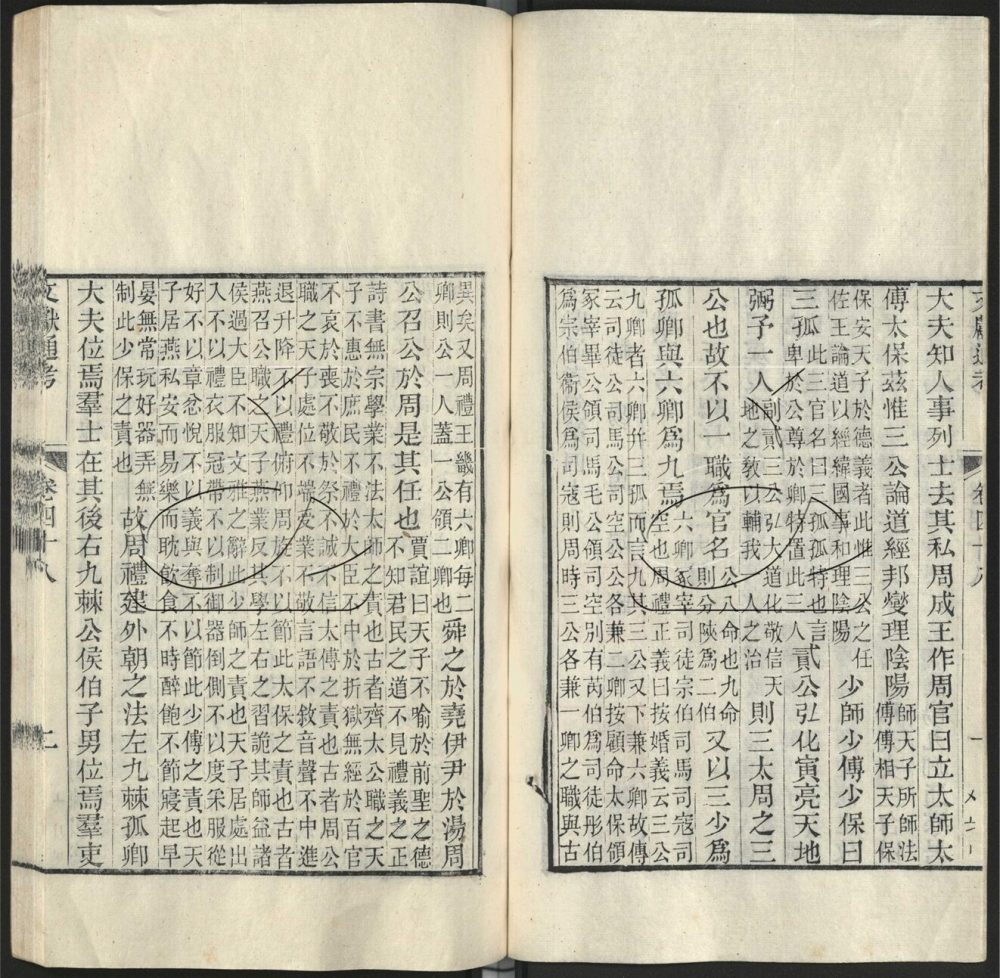 大夫知人事列士去其私周成王作周官曰立太師太
傅太保茲惟三公論道經邦燮理陰陽
師天子所師法
傅傅相天子保
保安天子於德義者此惟三公之任
佐王論道以經緯國事和理陰陽
少師少傅少保曰
三孤
此三官名曰三孤孤特也言
卑於公尊於卿特置此三人
貳公弘化寅亮天地
弼予一人
副貳三公弘大道化敬信天
地之教以輔我一人之治
則三太周之三
公也故不以一職爲官名
公八命也九命
則分陝爲二伯
又以三少爲
孤卿與六卿爲九焉
六卿冢宰司徒宗伯司馬司寇司
空也周禮正義曰按婚義云三公
九卿者六卿幷三孤而言九其三公又下兼六卿故傳
云司徒公司馬公司空公各兼二卿按顧命太保領
冢宰畢公領司馬毛公領司空別有芮伯爲司徒彤伯
爲宗伯衞侯爲司寇則周時三公各兼一卿之職與古
異矣又周禮王畿有六卿每二
卿則公一人蓋一公領二卿也
舜之於堯伊尹於湯周
公召公於周是其任也
賈誼曰天子不喻於前聖之德
不知君民之道不見禮義之正
詩書無宗學業不法太師之責也古者齊太公職之天
子不惠於庶民不禮於大臣不中於折獄無經於百官
不哀於喪不敬於祭不誠不信太傅之責也古者周公
職之天子處位不端受業不敬言語不敘音聲不中進
退升降不以禮俯仰周旋不以節此太保之責也古者
燕召公職之天子燕業反其學左右之習詭其師益諸
侯過大臣不知文雅之辭此少師之責也天子居處出
入不以禮衣服冠帶不以制御器倒側不以度采服從
好不以章忿悅不以義與奪不以節此少傅之責也天
子居燕私安而易樂而耽飲食不時醉飽不節寢起早
晏無常玩好器弄無
制此少保之責也
故周禮建外朝之法左九棘孤卿
大夫位焉羣士在其後右九棘公侯伯子男位焉羣吏
文獻通考
卷四十八
二